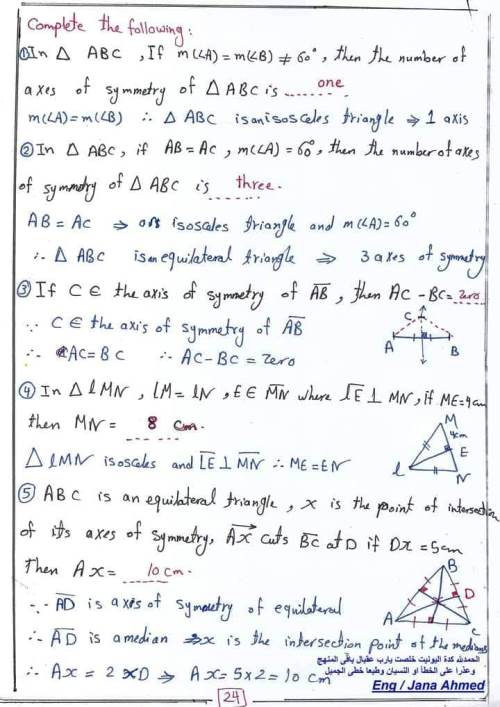 Complete the following:
① In △ ABC , If m(∠A) = m(∠B) ≠ 60°, then the number of
axes of symmetry of △ ABC is one
m(∠A) = m(∠B) ∴ △ ABC is an isosceles triangle ⇒ 1 axis
② In △ ABC, if AB = AC , m(∠A) = 60°, then the number of axes
of symmetry of △ ABC is three.
AB = AC ⇒ isoscales triangle and m(∠A) = 60°
∴ △ ABC is an equilateral triangle ⇒ 3 axes of symmetry
③ If C ∈ the axis of symmetry of A̅B̅, then AC - BC = zero
∵ C ∈ the axis of symmetry of A̅B̅
∴ AC = BC ∴ AC - BC = zero
C
A
B
④ In △ LMN , LM = LN , E ∈ M̅N̅ where L̅E̅ ⊥ MN, if ME = 4cm
then MN = 8 cm.
△ LMN isoscales and L̅E̅ ⊥ M̅N̅ ∴ ME = EN
M
4cm
E
L
N
⑤ ABC is an equilateral triangle, X is the point of intersection
of its axes of symmetry, AX→ cuts B̅C̅ at D if DX = 5cm
Then AX = 10 cm.
∵ A̅D̅ is axis of symmetry of equilateral
∴ A̅D̅ is a median ⇒ X is the intersection point of the medians
∴ AX = 2 XD ⇒ AX = 5x2 = 10 cm
B
D
A
C
الحمدلله كدة اليونيت خلصت يارب عقبال باقى المنهج
وعذرا على الخطأ او النسيان وطبعا خطى الجميل
Eng / Jana Ahmed
24